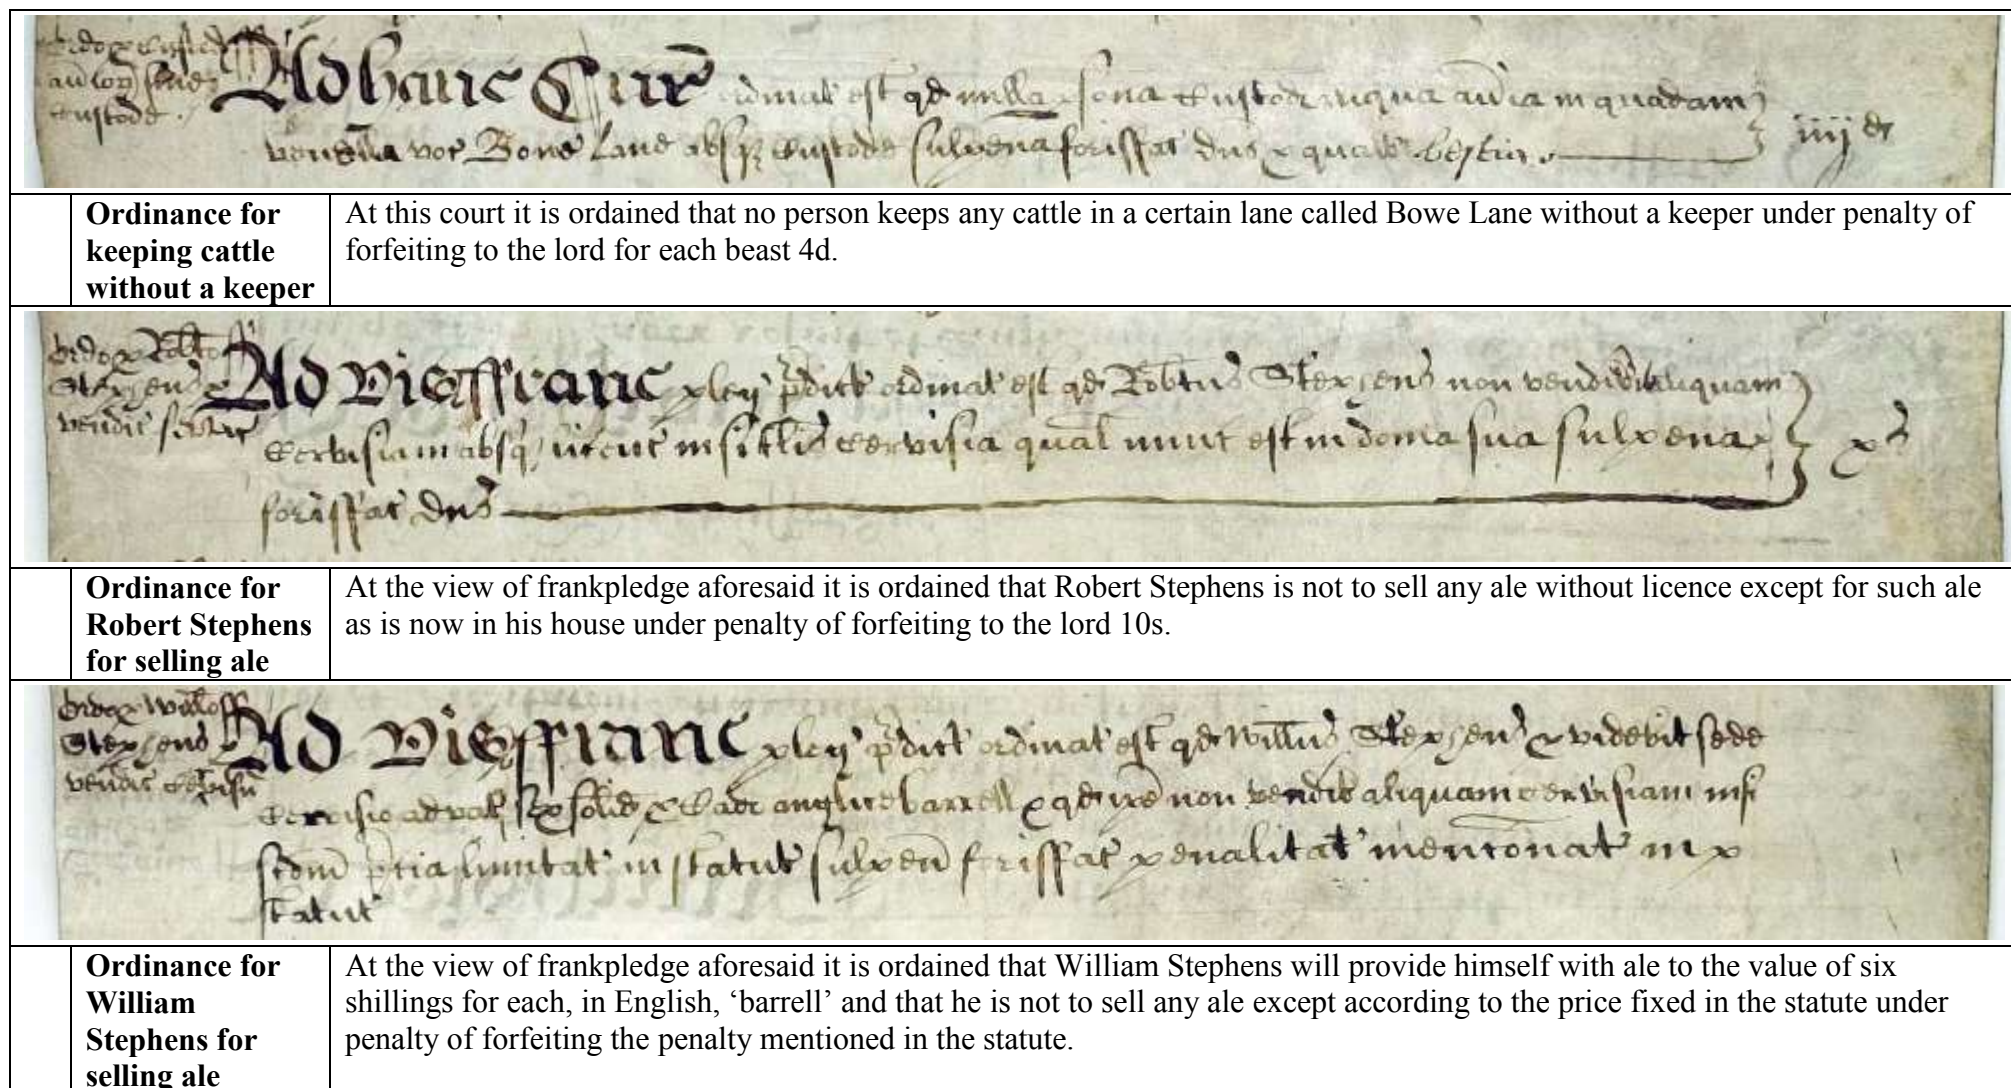 Ad hanc Cur ordinat est qd nulla psona Custod aliqua averia in quadam
venella voc Bowe Lane absq Custode sub pena forisfac dno p qualt bestia iiij d
Ordinance for
keeping cattle
without a keeper
At this court it is ordained that no person keeps any cattle in a certain lane called Bowe Lane without a keeper under penalty of
forfeiting to the lord for each beast 4d.
Ad Vis ffranc pleg pdict ordinat est qd Robtus Stephens non vendit aliquam
Cervisiam absq nisi Cervisia qual nunc est in domo sua sub pena
forisfac dno xs
Ordinance for
Robert Stephens
for selling ale
At the view of frankpledge aforesaid it is ordained that Robert Stephens is not to sell any ale without licence except for such ale
as is now in his house under penalty of forfeiting to the lord 10s.
Ad Vis ffranc pleg pdict ordinat est qd Willus Stephens pvidebit se de
Cervisia ad val sex solid p anglice barrell & qd non vendit aliquam cervisiam nisi
scdm limitat in statut sub pena forisfac penalitat mencionat in
statut
Ordinance for
William
Stephens for
selling ale
At the view of frankpledge aforesaid it is ordained that William Stephens will provide himself with ale to the value of six
shillings for each, in English, ‘barrell’ and that he is not to sell any ale except according to the price fixed in the statute under
penalty of forfeiting the penalty mentioned in the statute.